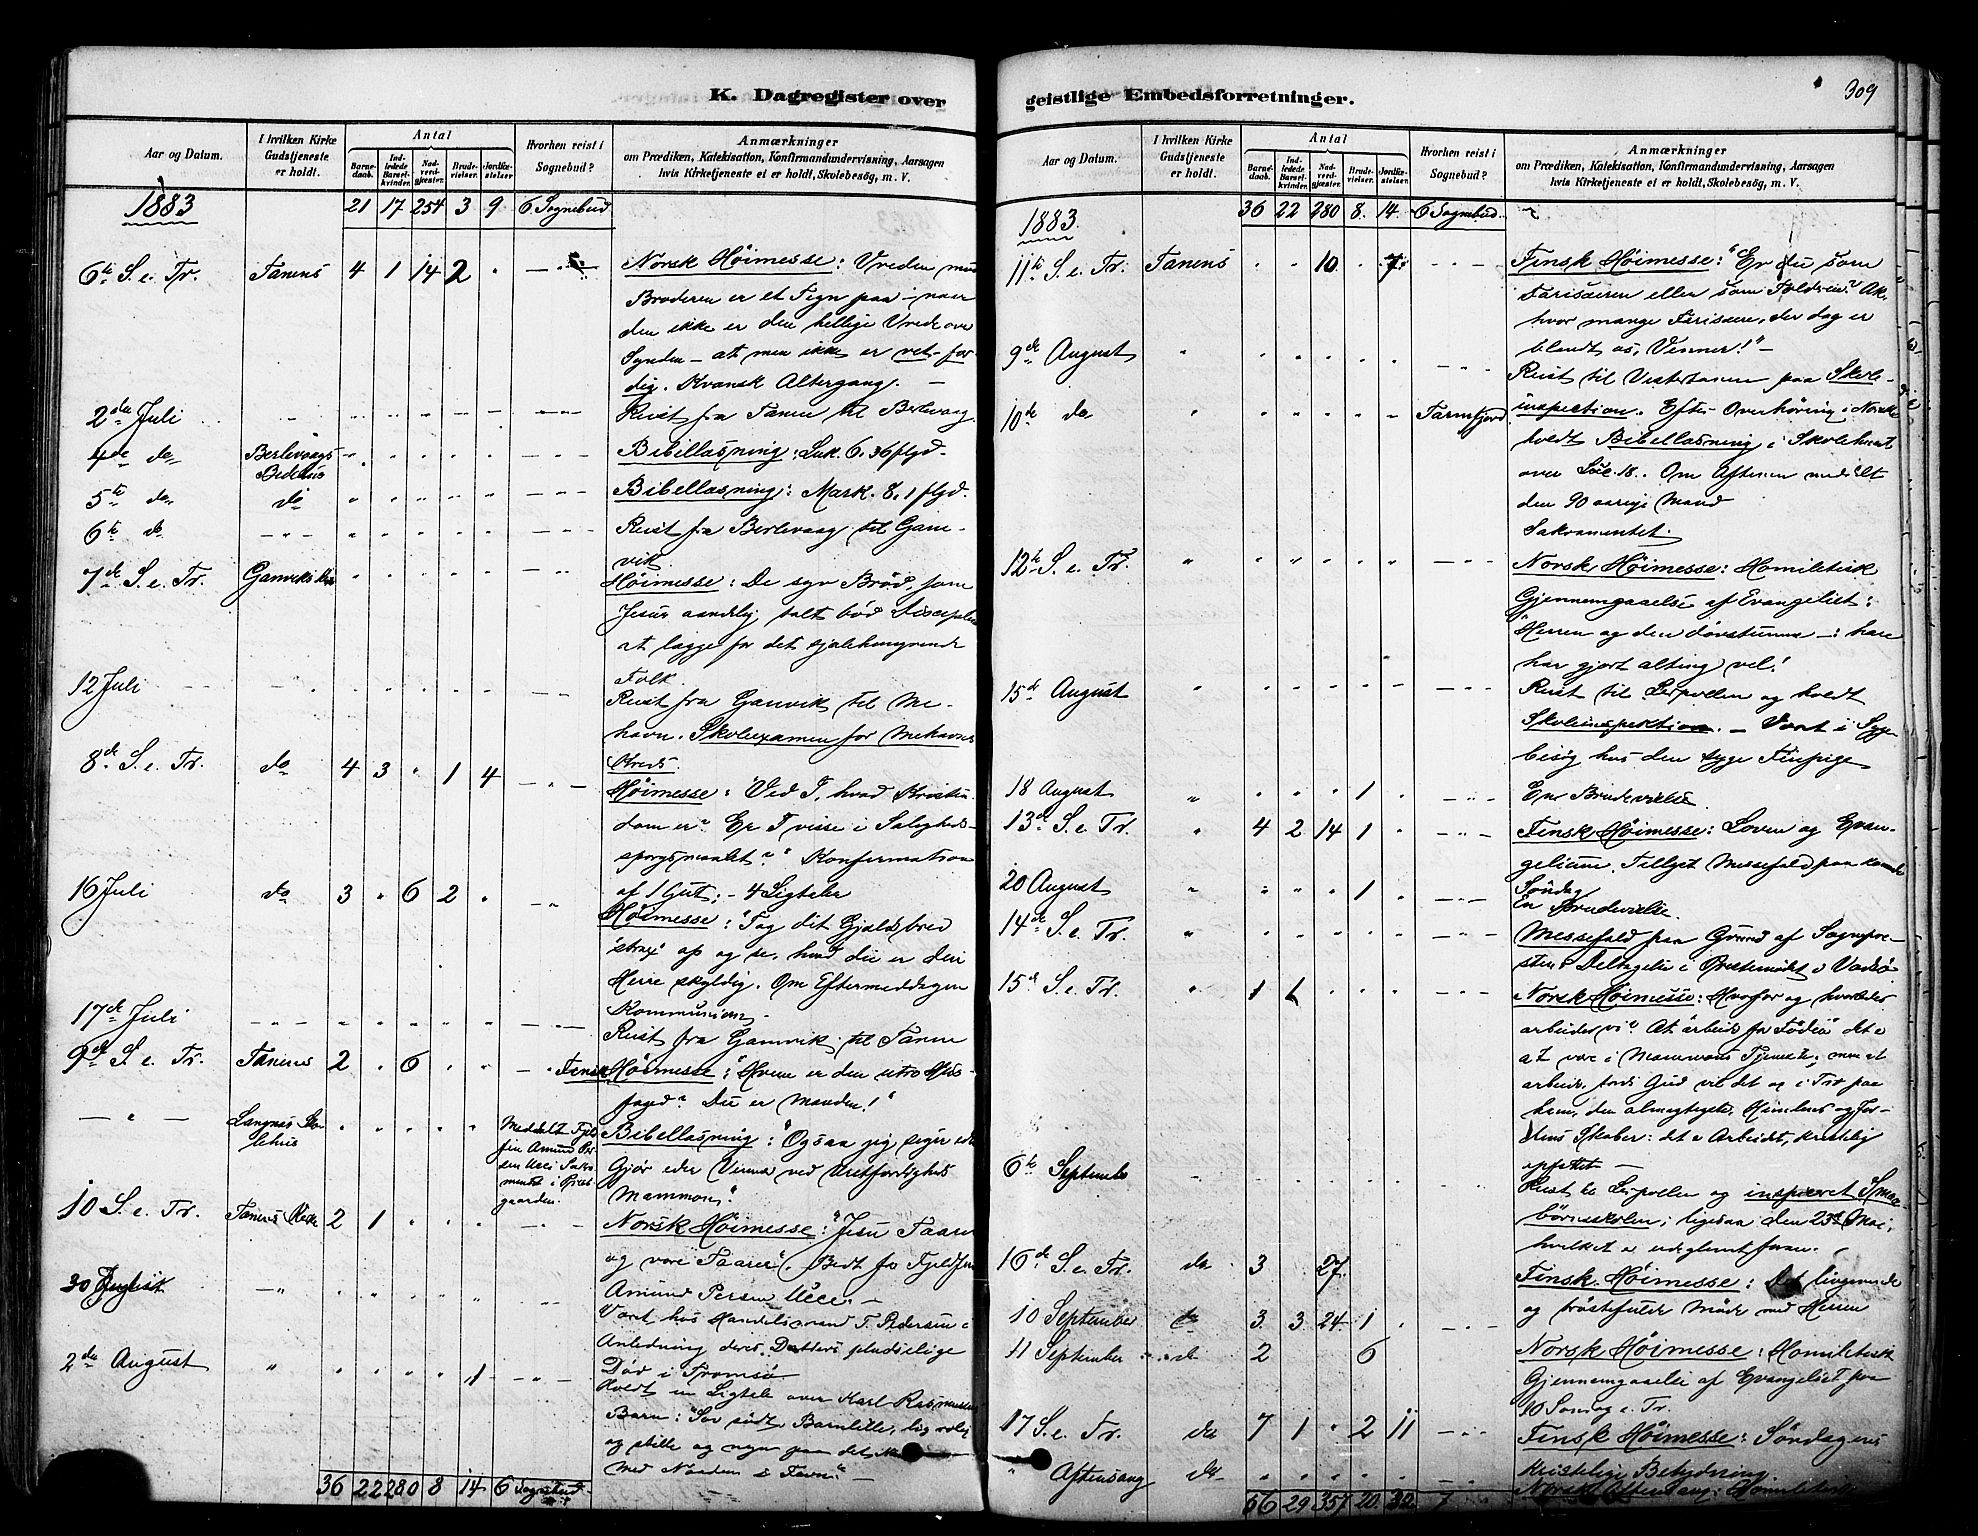 309
K. Dagregister over
geistlige Embedsforretninger.
Aar og Datum.
I hvilken Kirke Gudstjeneste er holdt.
Antal
Barnedaab. Indledede Barselkvinder. Nadverdgjæster. Brudevielser. Jordfæstelser.
Hvorhen reist i Sognebud?
Anmærkninger
om Prædiken, Katekisation, Konfirmandundervisning, Aarsagen
hvis Kirketjeneste ei er holdt, Skolebesøg, m. V.
1883 21 17 254 3 9 6 Sognebud
6te S. e. Tr. Tanens 4 1 14 2 Norsk Høimesse: Vreden mod
Broderen er et Tegn paa – naar
den ikke er den hellige Vrede over
Synden – at men ikke er ret-fær
dig. Kvænsk Altergang. –
2den Juli Reist fra Tanen til Berlevaag
4de do Berlevaags Bedehus Bibellæsning: Luk. 6. 36 flgd.
5te do do Bibellæsning: Mark. 8, 1 flgd.
6te do Reist fra Berlevaag til Gam-
vik
7de S. e. Tr. Gamviks Høimesse: De syv Brød, som
Jesus aandelig talt bød Disciplene
at lægge for det sjælehungrende
Folk
12 Juli Reist fra Gamvik til Me-
havn. Skoleexamen for Mehavns
Kreds.
8de S. e. Tr. do 4 3 1 4 Høimesse: Ved I, hvad Kristen
dom er? Er I visse i Saligheds-
spørgsmaalet? Konfirmation
af 1 Gut; – 4 Ligtaler
16 Juli do 3 6 2 Høimesse: "Tag dit Gjældsbrev
strax op og se, hvad du er din
Herre skyldig. Om Eftermeddagen
Kommunion.
17de Juli Reist fra Gamvik til Tanen
9de S. e. Tr. Tanens 2 6 Finsk Høimesse: Hvem er den utro Hus-
foged? Du er Manden!"
Langnæs Skolehus Meddelt Fjeldfin Amund Persen Ucce Sakramentet i Præstegaarden. Bibellæsning: "Ogsaa jeg siger eder
Gjør eder Venner ved Uretfærdigheds
Mammon".
10 S. e. Tr. Tanens Kirke 2 1 Norsk Høimesse: "Jesu Taarer
og vore Taarer". Bedt for Fjeldfin
Amund Persen Ucce. –
30 Været hos Handelsmand F. Pedersen i
Anledning deres Datters pludselige
Død i Tromsø
2den August 1 Holdt en Ligtale over Karl Rasmussens
Barn: "Sov sødt Barnlille, lig rolig
og stille og
36 22 280 8 14 6 Sognebud
Aar og Datum.
I hvilken Kirke Gudstjeneste er holdt.
Antal
Barnedaab. Indledede Barselkvinder. Nadverdgjæster. Brudevielser. Jordfæstelser.
Hvorhen reist i Sognebud?
Anmærkninger
om Prædiken, Katekisation, Konfirmandundervisning, Aarsagen
hvis Kirketjeneste ei er holdt, Skolebesøg, m. V.
1883. 36 22 280 8. 14. 6 Sognebud.
11te S. e. Tr. Tanens 10 Finsk Høimesse: "Er du som
Farisæeren eller som Tolderen? Ak,
hvor mange Farisæere, der dog er
blandt os, Venner!" –
9de August Reist til Vestertanen paa Skole-
10de do Tarmfjord inspection. Efter Overhøring i Norsk
holdt Bibellæsning i Skolehuset
over Luc. 18. Om Aftenen meddelt
den 90 aarige Mand
Sakramentet.
12te S. e. Tr. Norsk Høimesse: Homiletisk
Gjennemgaaelse af Evangeliet:
Herren og den døvstumme –: han
har gjort alting vel!
15de August Reist til Leirpollen og holdt
Skoleinspektion. – Været i Syge
besøg hos den syge Finpige
18 August 1 En Brudevielse
13de S. e. Tr. 4 2 14 1 Finsk Høimesse: Loven og Evan-
gelium. Tillyst Messefald paa kommende
Søndag
20 August 1 En Brudevielse.
14de S. e. Tr. Messefald paa Grund af Sognepre-
stens Deltagelse i Præstemødet i Vadsø
15de S. e. Tr. 1 1 Norsk Høimesse: Hvorfor og hvorledes
arbeider vi? At arbeide for Føden det er
at være i Mammons Tjeneste; men at
arbeide, fordi Gud vil det og i Tro paa
ham, den almægtigste, Himlens og Jor-
dens Skaber: det er Arbeidet, kristelig
opfattet –
6te September Reist til Leirpollen og inspiceret Smaa-
børnsskolen; ligesaa den 23de Mai,
hvilket er udeglemt foran.
16de S. e. Tr. do 3 27. Finsk Høimesse: Det
og trøstefulde Møde med Herren
10 September do 3. 3 24. 1 Norsk Høimesse: Homiletisk
11 September do 2 6 Gjennemgaaelse af Evangeliet paa
Søndag e. Tr.
17 S. e. Tr. do 7 1 2 11 Finsk Høimesse: Søndagens
kristelige Betydning.
" Aftensang do Norsk Aftensang: Homiletisk
66 29 357 20. 32. 7